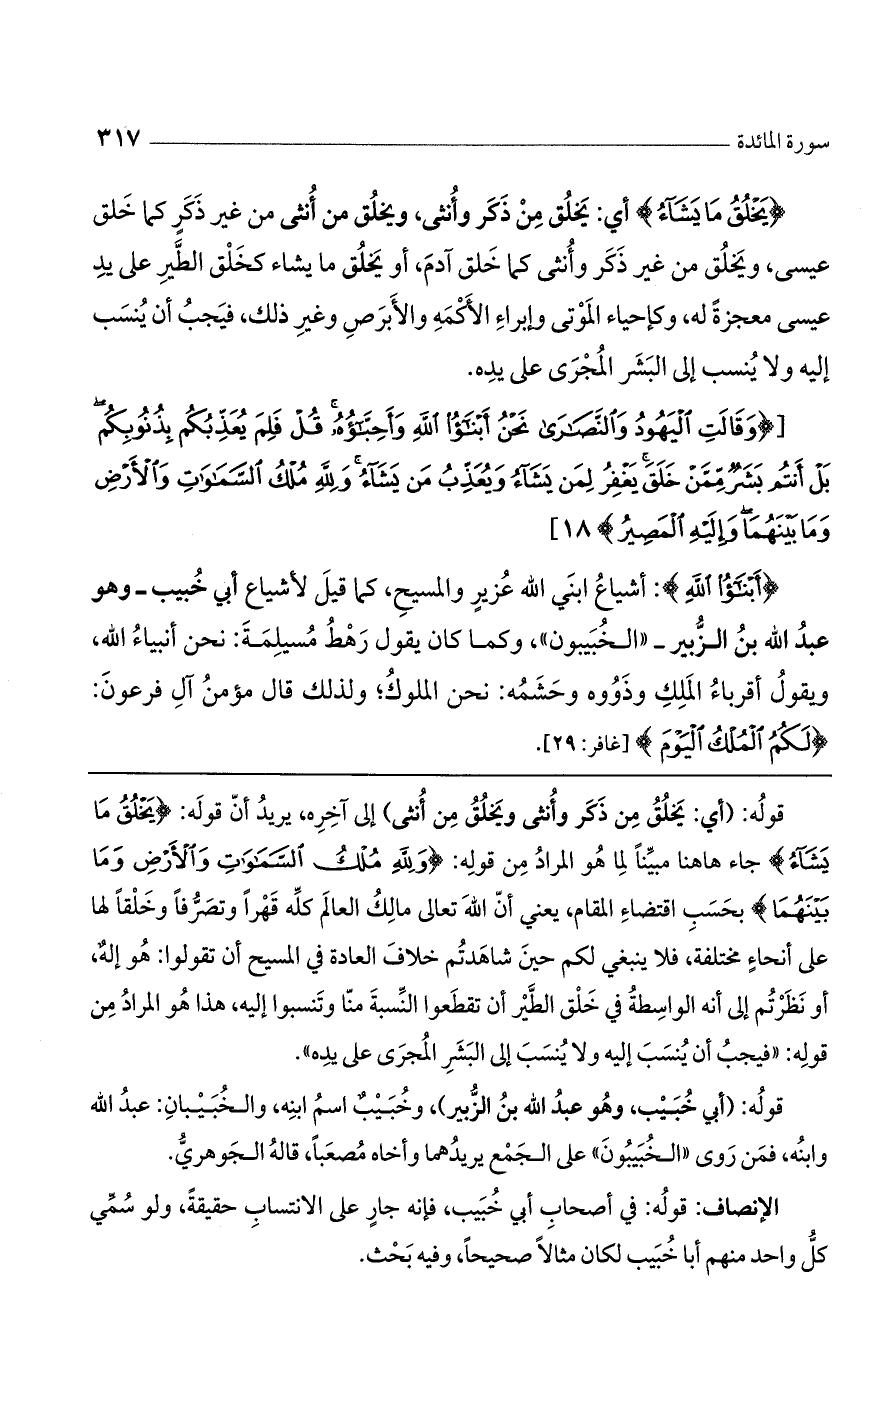 سورة المائدة ٣١٧
﴿يَخْلُقُ مَا يَشَآءُ﴾ أي: يَخلُق مِنْ ذَكَر وأُنثى، ويخلُق من أُنثى من غير ذَكَرٍ كما خَلق
عيسى، ويَخلُق من غير ذَكَر وأُنثى كما خَلق آدمَ، أو يَخلُق ما يشاء كخَلْق الطَّيرِ على يدِ
عيسى معجزةً له، وكإحياء المَوْتى وإبراءِ الأَكْمَهِ والأَبرَصِ وغيرِ ذلك، فيَجبُ أن يُنسَب
إليه ولا يُنسب إلى البَشَر المُجْرَى على يدِه.
[﴿وَقَالَتِ ٱلْيَهُودُ وَٱلنَّصَٰرَىٰ نَحْنُ أَبْنَٰٓؤُا۟ ٱللَّهِ وَأَحِبَّٰٓؤُهُۥ ۚ قُلْ فَلِمَ يُعَذِّبُكُم بِذُنُوبِكُم ۖ
بَلْ أَنتُم بَشَرٌ مِّمَّنْ خَلَقَ ۚ يَغْفِرُ لِمَن يَشَآءُ وَيُعَذِّبُ مَن يَشَآءُ ۚ وَلِلَّهِ مُلْكُ ٱلسَّمَٰوَٰتِ وَٱلْأَرْضِ
وَمَا بَيْنَهُمَا ۖ وَإِلَيْهِ ٱلْمَصِيرُ﴾ ١٨]
﴿أَبْنَٰٓؤُا۟ ٱللَّهِ﴾: أشياعُ ابنَي الله عُزيرٍ والمسيحِ، كما قيلَ لأشياع أبي خُبيب ـ وهو
عبدُ الله بنُ الـزُّبير ـ «الـخُبَيبون»، وكمـا كان يقول رَهْطُ مُسيلِمَـةَ: نحن أنبياءُ الله،
ويقولُ أقرباءُ المَلِكِ وذَوُوه وحَشَمُه: نحن الملوكُ؛ ولذلك قال مؤمنُ آلِ فرعونَ:
﴿لَكُمُ ٱلْمُلْكُ ٱلْيَوْمَ﴾ [غافر: ٢٩].
قولُه: (أي: يَخلُقُ مِن ذَكَر وأُنثى ويَخلُقُ مِن أُنثى) إلى آخِرِه، يريدُ أنّ قولَه: ﴿يَخْلُقُ مَا
يَشَآءُ﴾ جاء هاهنا مبيِّناً لِما هُو المرادُ مِن قولِه: ﴿وَلِلَّهِ مُلْكُ ٱلسَّمَٰوَٰتِ وَٱلْأَرْضِ وَمَا
بَيْنَهُمَا﴾ بحَسَبِ اقتضاءِ المقام، يعني أنّ اللهَ تعالى مالِكُ العالَم كلِّه قَهْراً وتصَرُّفاً وخَلْقاً لها
على أنحاءٍ مختلفة، فلا ينبغي لكم حينَ شاهَدتُم خلافَ العادة في المسيح أن تقولوا: هُو إلهٌ،
أو نَظَرْتُم إلى أنه الواسِطةُ في خَلْق الطَّيْر أن تقطَعوا النِّسبةَ منّا وتَنسبوا إليه، هذا هُو المرادُ مِن
قولِه: «فيجبُ أن يُنسَبَ إليه ولا يُنسَبَ إلى البَشَرِ المُجرَى على يدِه».
قولُه: (أبي خُبَيْب، وهُو عبدُ الله بنُ الزُّبير)، وخُبَـيْبٌ اسمُ ابنِه، والـخُبَـيْـبانِ: عبدُ الله
وابنُه، فمَن رَوى «الـخُبَيبُونَ» على الـجَمْع يريدُهما وأخاه مُصعَباً، قالهُ الـجَوهريُّ.
الإنصاف: قولُه: في أصحابِ أبي خُبَيب، فإنه جارٍ على الانتسابِ حقيقةً، ولو سُمِّي
كلُّ واحد منهم أبا خُبَيب لكان مثالاً صحيحاً، وفيه بَحْث.